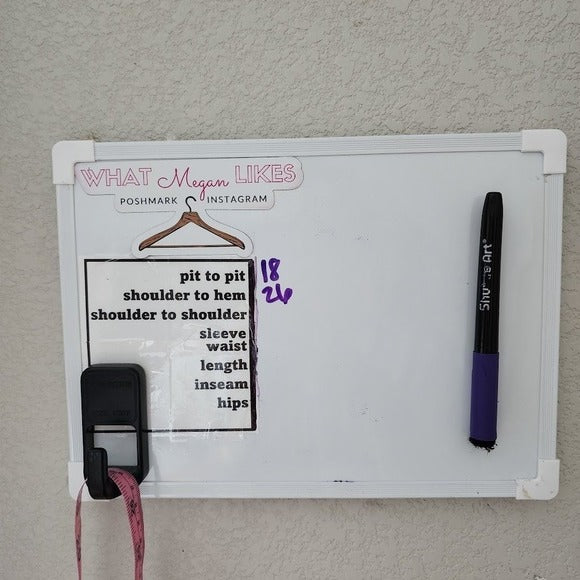 WHAT Megan LIKES
POSHMARK INSTAGRAM
pit to pit 18
shoulder to hem 26
shoulder to shoulder
sleeve
waist
length
inseam
hips